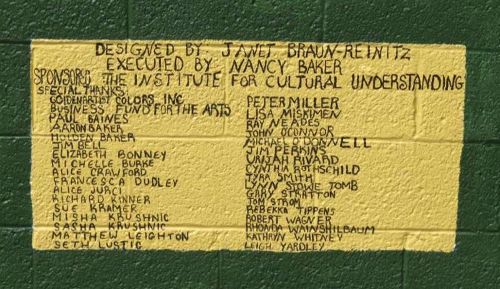 DESIGNED BY: JANET BRAUN-REINITZ
EXECUTED BY NANCY BAKER
SPONSORS THE INSTITUTE FOR CULTURAL UNDERSTANDING
SPECIAL THANKS
GOLDEN ARTIST COLORS, INC.
BUSINESS FUND FOR THE ARTS
PAUL BAINES
AARON BAKER
HOLDEN BAKER
JIM BELL
ELIZABETH BONNEY
MICHELLE BURKE
ALICE CRAWFORD
FRANCESCA DUDLEY
ALICE JURCI
RICHARD KINNER
SUE KRAMER
MISHA KRUSHNIC
SASHA KRUSHNIC
MATTHEW LEIGHTON
SETH LUSTIG
PETER MILLER
LISA MISKIMEN
RAY NEADES
JOHN OCONNOR
MICHAEL O'DONNELL
JIM PERKINS
URIAH RIVARD
CYNTHIA ROTHSCHILD
TYRA SMITH
LYNN STOWE TOMB
GARY STRATTON
TOM STROM
REBEKKA TIPPENS
ROBERT WAGNER
RHONDA WAINSHILBAUM
KATHRYN WHITNEY
LEIGH YARDLEY